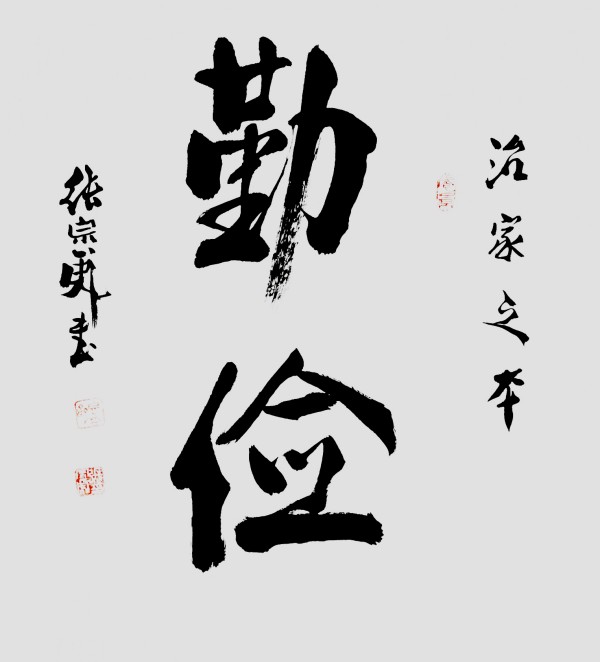 治家之本
勤俭
张宗勇书